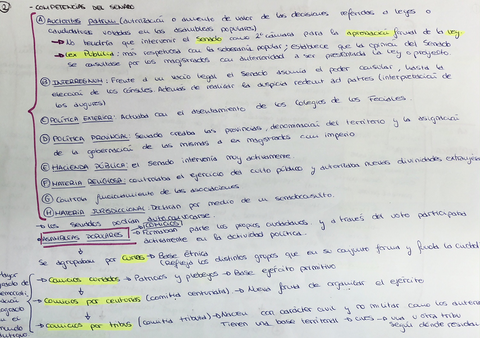 2
- COMPETENCIAS DEL SENADO
A AUCTORITAS PATRUM (autorización o aumento de valor de las decisiones referidas a leyes o
candidaturas votadas en las asambleas populares)
→ No tendría que intervenir el Senado como 2ª cámara para la aprobación formal de la ley.
→ Lex Publilia: más respetuosa con la soberanía popular; establece que la opinión del Senado
se consultase por los magistrados con anterioridad a ser presentada la ley o proyecto
B INTERREGNUM: Frente a un vacío legal el Senado asumía el poder consular, hasta la
elección de los cónsules. Además de realizar la auspicia redeunt ad patres (interpretación de
los augures)
C POLÍTICA EXTERIOR: Actuaba con el asesoramiento de los Colegios de los Feciales
D POLÍTICA PROVINCIAL: Senado creaba las provincias, denominación del territorio y la asignación
de la gobernación de las mismas a ex magistrados cum imperio
E HACIENDA PÚBLICA: el Senado intervenía muy activamente.
F MATERIA RELIGIOSA: controlaba el ejercicio del culto público y autorizaba nuevas divinidades extranjeras
G Control funcionamiento de las asociaciones
H MATERIA JURISDICCIONAL: Dictran por medio de un senadoconsulto.
→ los senados podían autoconvocarse.
(COMICIOS)
→ ASAMBLEAS POPULARES → Formaban parte los propios ciudadanos y a través del voto participaba
activamente en la actividad política.
Se agrupaban por curias → Base étnica
(Refleja los distintos grupos que en su conjunto forman y funda la ciudad
→ comicios curiados → Patricios y plebeyos → Base ejército primitivo
→ comicios por centurias (comitia centuriata) → Nueva forma de organizar el ejército
→ comicios por tribus (comitia tributa) → Nacen con carácter civil y no militar como los anteriores
Tienen una base territorial → cives → a una u otra tribu
según donde residan